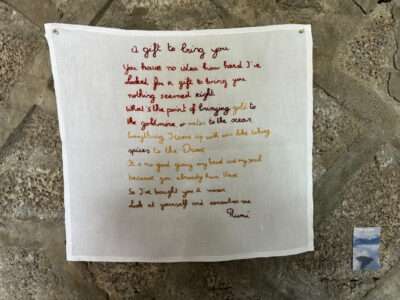 A gift to bring you
You have no idea how hard I've
looked for a gift to bring you
nothing seemed right
what's the point of bringing gold to
the goldmine, or water to the ocean
Everything I came up with was like taking
spices to the Orient
It is no good giving my heart and my soul
because you already have these
So I've brought you a mirror
Look at yourself and remember me
Rumi